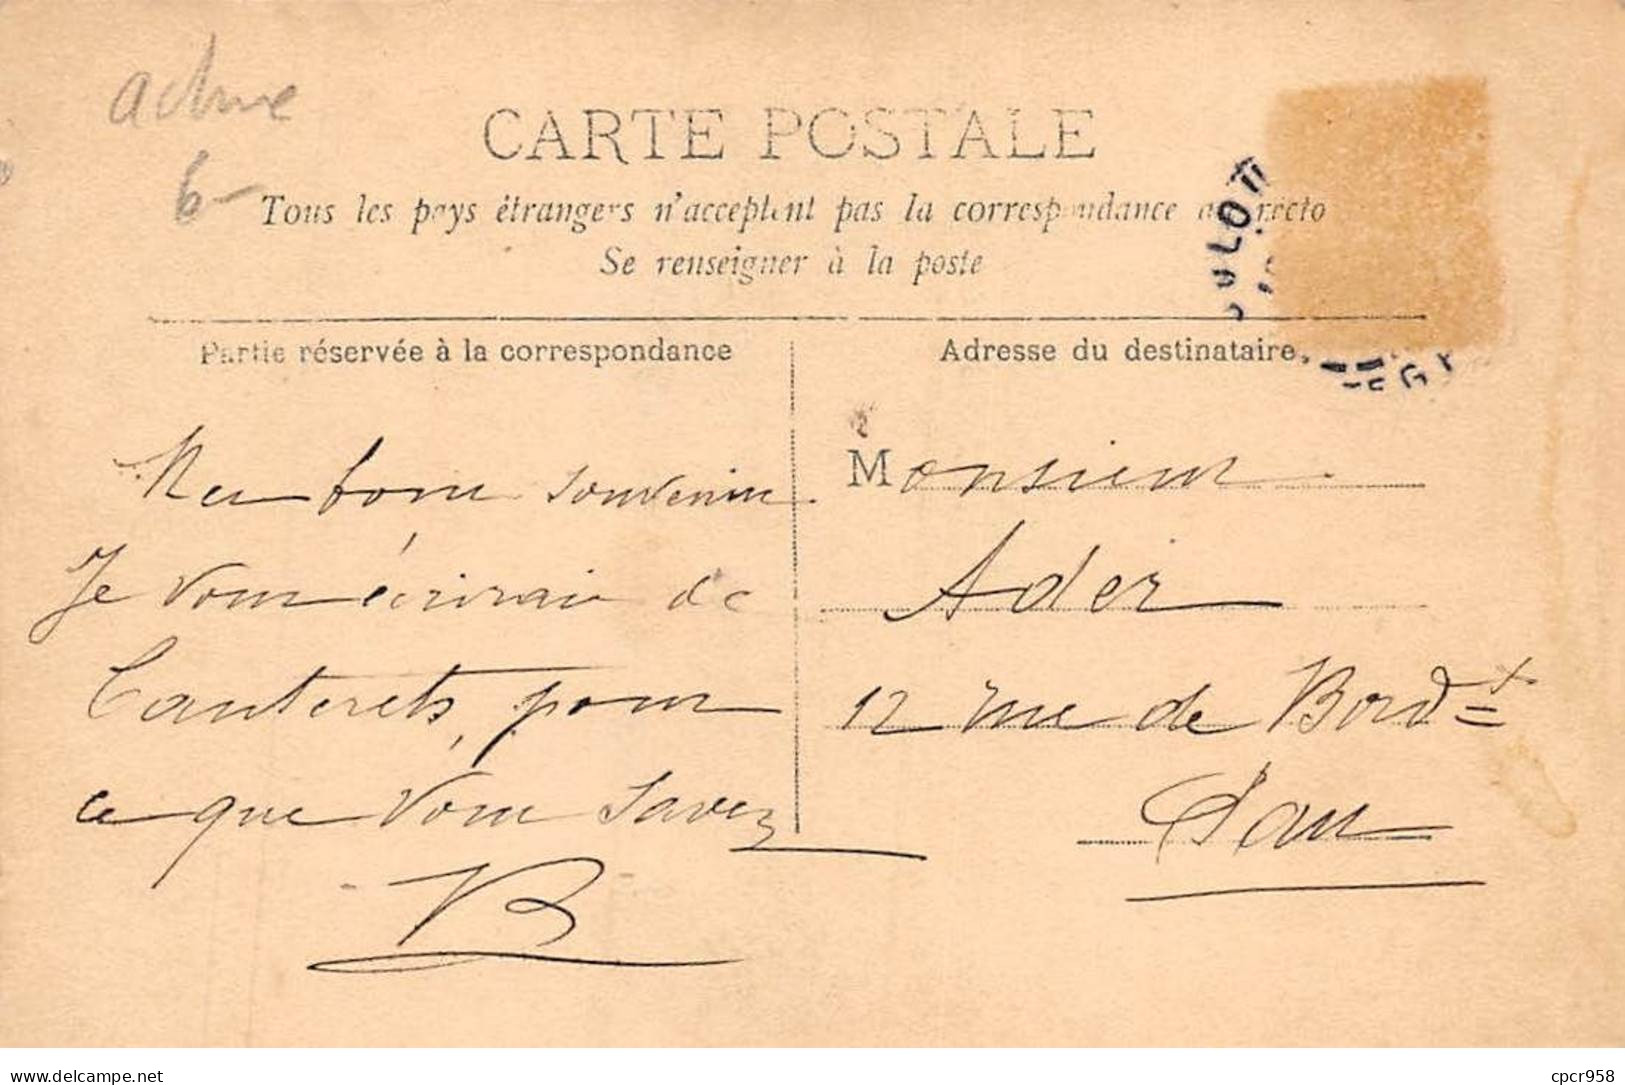 6-
CARTE POSTALE
Tous les pays étrangers n'acceptent pas la correspondance au recto
Se renseigner à la poste
Partie réservée à la correspondance
Adresse du destinataire
bons souvenirs
Je vous écrirai de
Cauterets, pour
ce que vous savez
B
Monsieur
Ader
12 rue de Bordx
Pau
delcampe.net
cpcr958